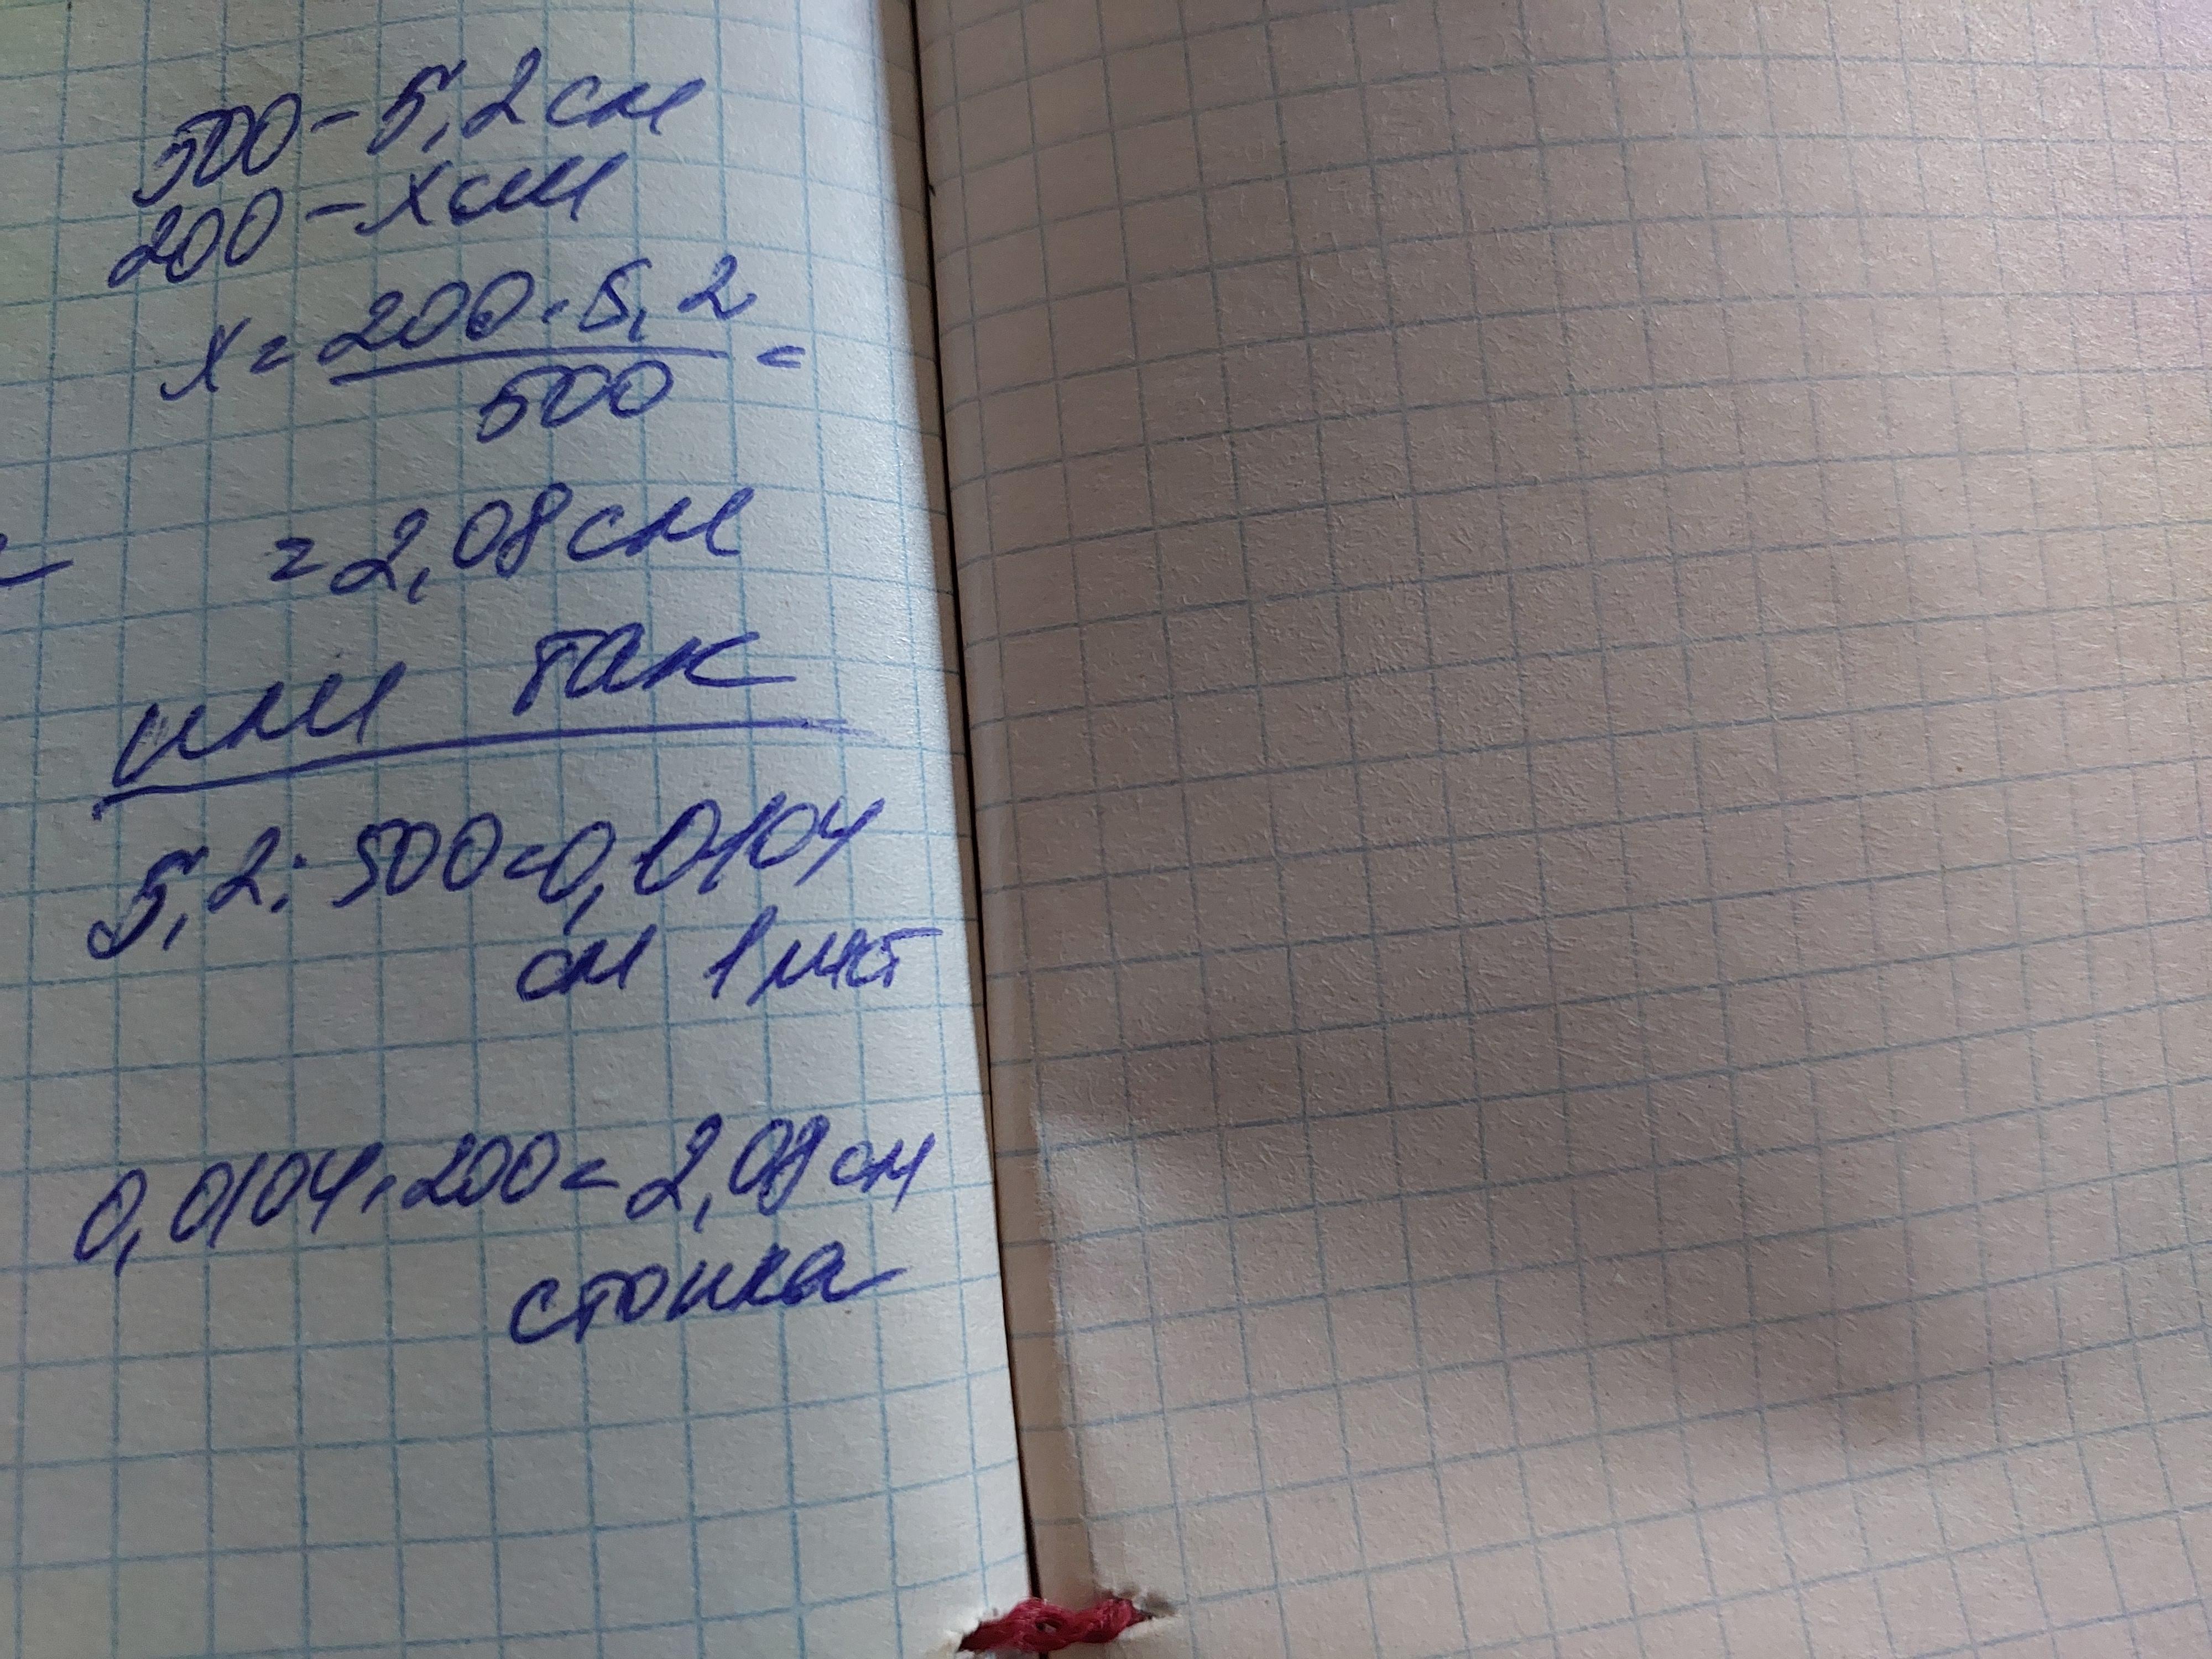 500 – 5,2 см
200 – х см
х = 200 · 5,2 / 500 =
= 2,08 см
или так
5,2 : 500 = 0,0104
см 1 лист
0,0104 · 200 = 2,08 см
стопка